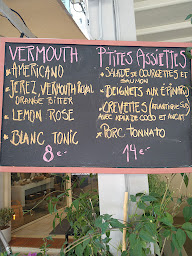 VERMOUTH
AMERICANO
JEREZ, VERMOUTH ROYAL
ORANGE BITTER
LEMON ROSE
BLANC TONIC
8 e-
P'TITES ASSIETTES
SALADE DE COURGETTES ET
SAUMON
BEIGNETS AUX ÉPINARDS
CREVETTES (ATLANTIQUE SUD)
AVEC
COCO ET
PORC TONNATO
14 e-